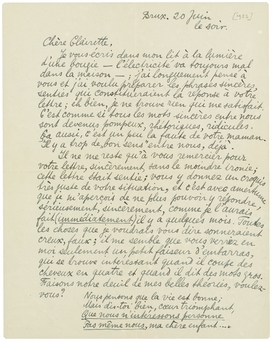 Brux. 20 Juin
le soir.
Chère Clairette,
Je vous écris dans mon lit à la lumière
d'une bougie — L'électricité va toujours mal
dans la maison — ; j'ai longuement pensé à
vous et j'ai voulu préparer les phrases sincères,
senties qui constitueraient la réponse à votre
lettre ; eh bien, je ne trouve rien qui me satisfait.
C'est comme si tous les mots sincères entre nous
sont devenus pompeux, rhétoriques, ridicules.
Ça aussi, c'est un peu la faute de votre maman.
Il y a trop de bon sens entre nous, déjà.
Il ne me reste qu'à vous remercier pour
votre lettre, sincèrement, sans le moindre ironie ;
cette lettre était sentie ; vous y donnez un croquis
très juste de votre situation, et c'est avec amertume
que je m'aperçois de ne plus pouvoir y répondre
sérieusement, sincèrement, comme je l'aurais
fait immédiatement il y a quelques mois. Toutes
les choses que je voudrais vous dire sonneraient
creux, faux ; il me semble que vous verriez en
moi seulement un petit faiseur d'embarras,
qui se trouve intéressant quand il coupe des
cheveux en quatre et quand il dit des mots gros.
Faisons notre deuil de mes belles théories, voulez-
vous?
Nous pensons que la vie est bonne ;
Mais dis-toi bien, cœur triomphant,
Que nous n'intéressons personne,
Pas même nous, ma chère enfant...